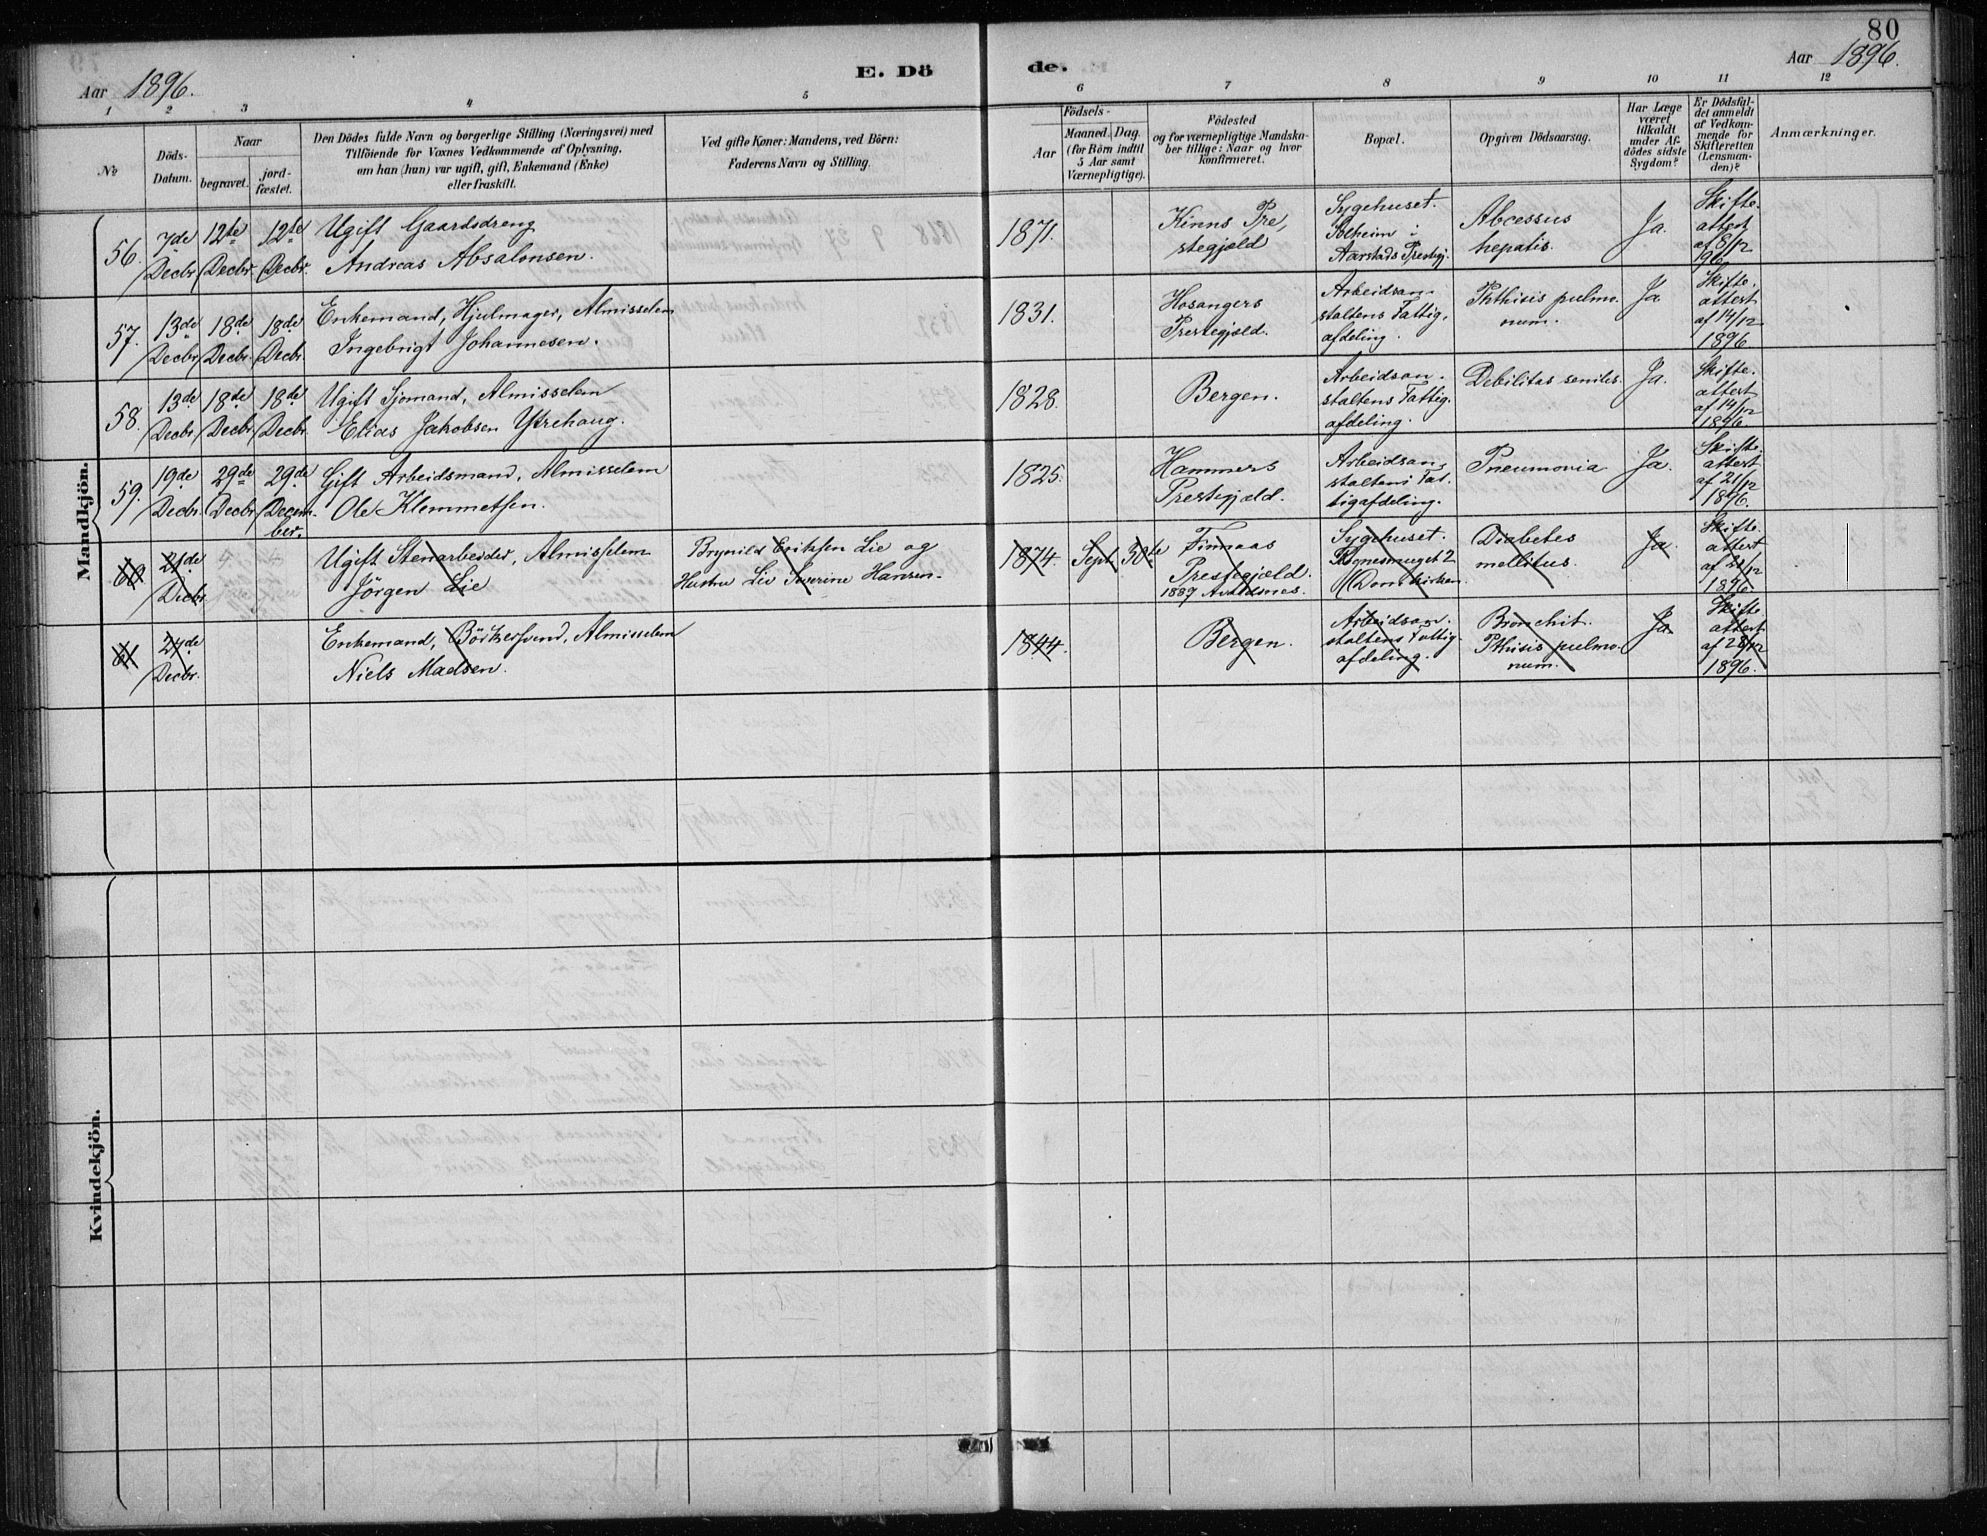 80
Aar 1896.
E. Dö
de.
Aar 1896.
1 2 3 4 5 6 7 8 9 10 11 12
No
Döds-
Datum.
Naar
begravet.
jord-
fæstet.
Den Dödes fulde Navn og borgerlige Stilling (Næringsvei) med
Tilföiende for Voxnes Vedkommende af Oplysning,
om han (hun) var ugift, gift, Enkemand (Enke)
eller fraskilt.
Ved gifte Koner: Mandens, ved Börn:
Faderens Navn og Stilling.
Födsels-
Aar
Maaned. Dag.
(for Börn indtil
5 Aar samt
Værnepligtige).
Födested
og for værnepligtige Mandska-
ber tillige: Naar og hvor
konfirmeret.
Bopæl.
Opgiven Dödsaarsag.
Har Læge
været
tilkaldt
under Af-
dödes sidste
Sygdom?
Er Dödsfal-
det anmeldt
af Vedkom-
mende for
Skifteretten
(Lensman-
den)?
Anmærkninger.
Mandkjön.
56.
7de
Decbr.
12te
Decbr.
12te
Decbr.
Ugift Gaardsdreng
Andreas Absalonsen.
1871.
Kinns Pre,
stegjeld
Sygehuset.
Solheim i
Aarstads Prestegj.
Abcessus
hepatis.
Ja.
Skifte.
attert
af 8/12
96.
57.
13de
Decbr.
18de
Decbr.
18de
Decbr.
Enkemand, Hjulmager, Almisselem
Ingebrigt Johannesen.
1831.
Hosangers
Prestegjeld.
Arbeidsan-
staltens Fattig,
afdeling.
Phthisis pulmo-
num.
Ja
Skifte.
attert
af 14/12
1896.
58.
13de
Decbr.
18de
Decbr.
18de
Decbr.
Ugift Sjomand, Almisselem
Elias Jakobsen Ytrehaug.
1828.
Bergen.
Arbeidsan-
staltens Fattig.
afdeling.
Debilitas senilis.
Ja.
Skifte.
attert
af 14/12
1896.
59.
19de
Decbr.
29de
Decbr.
29de
Decem-
ber.
Gift Arbeidsmand, Almisselem
Ole Klemmetsen.
1825.
Hammers
Prestegjæld.
Arbeidsan,
staltens Fat-
tigafdeling.
Pneumonia
Ja.
Skifte.
attert
af 21/12
1896.
60
21de
Decbr
Ugift Stenarbeider, Almisselem
Jörgen Lie
Brynild Eriksen Lie og
Hustru Liv Severine Hansen.
1874. Sept 30te
Finnaas
Prestegjæld.
1889 Avaldsnes.
Sygehuset.
2
(Domkirken
Diabetes
mellitus.
Ja.
Skifte.
attert
1896.
61
24de
Decbr.
Enkemand, Bödkersvend, Almisselem
Niels Madsen.
1844.
Bergen.
Arbeidsan-
staltens Fattig-
afdeling.
Bronchit.
Phthisis pulmo-
num.
Ja
Skifte.
attert
af 28/12
1896.
Kvindekjön.